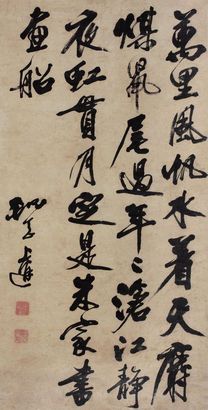 萬里風帆水着天麝
煤鼠尾過年〻滄江静
夜虹貫月定是米家書
畫船